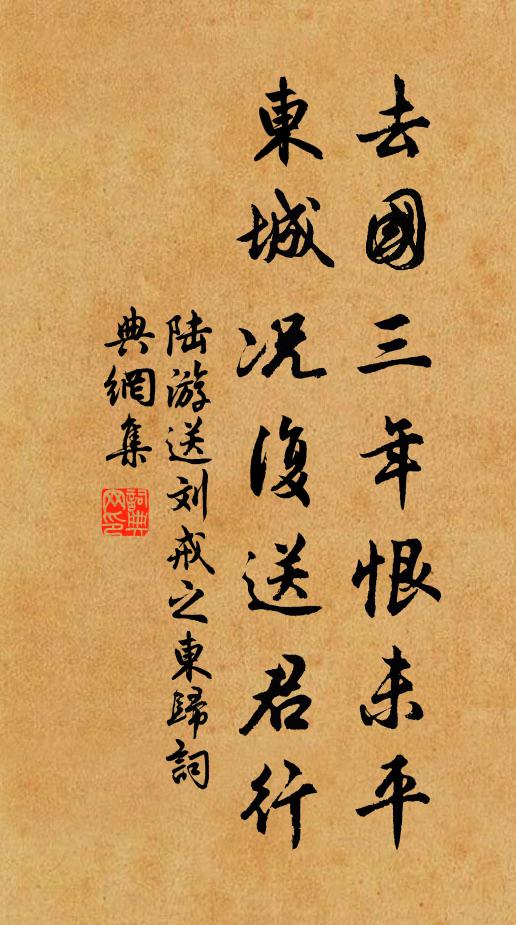 去國三年恨未平
東城况復送君行
陆游送刘戒之東歸詞
典網集
詞典網印